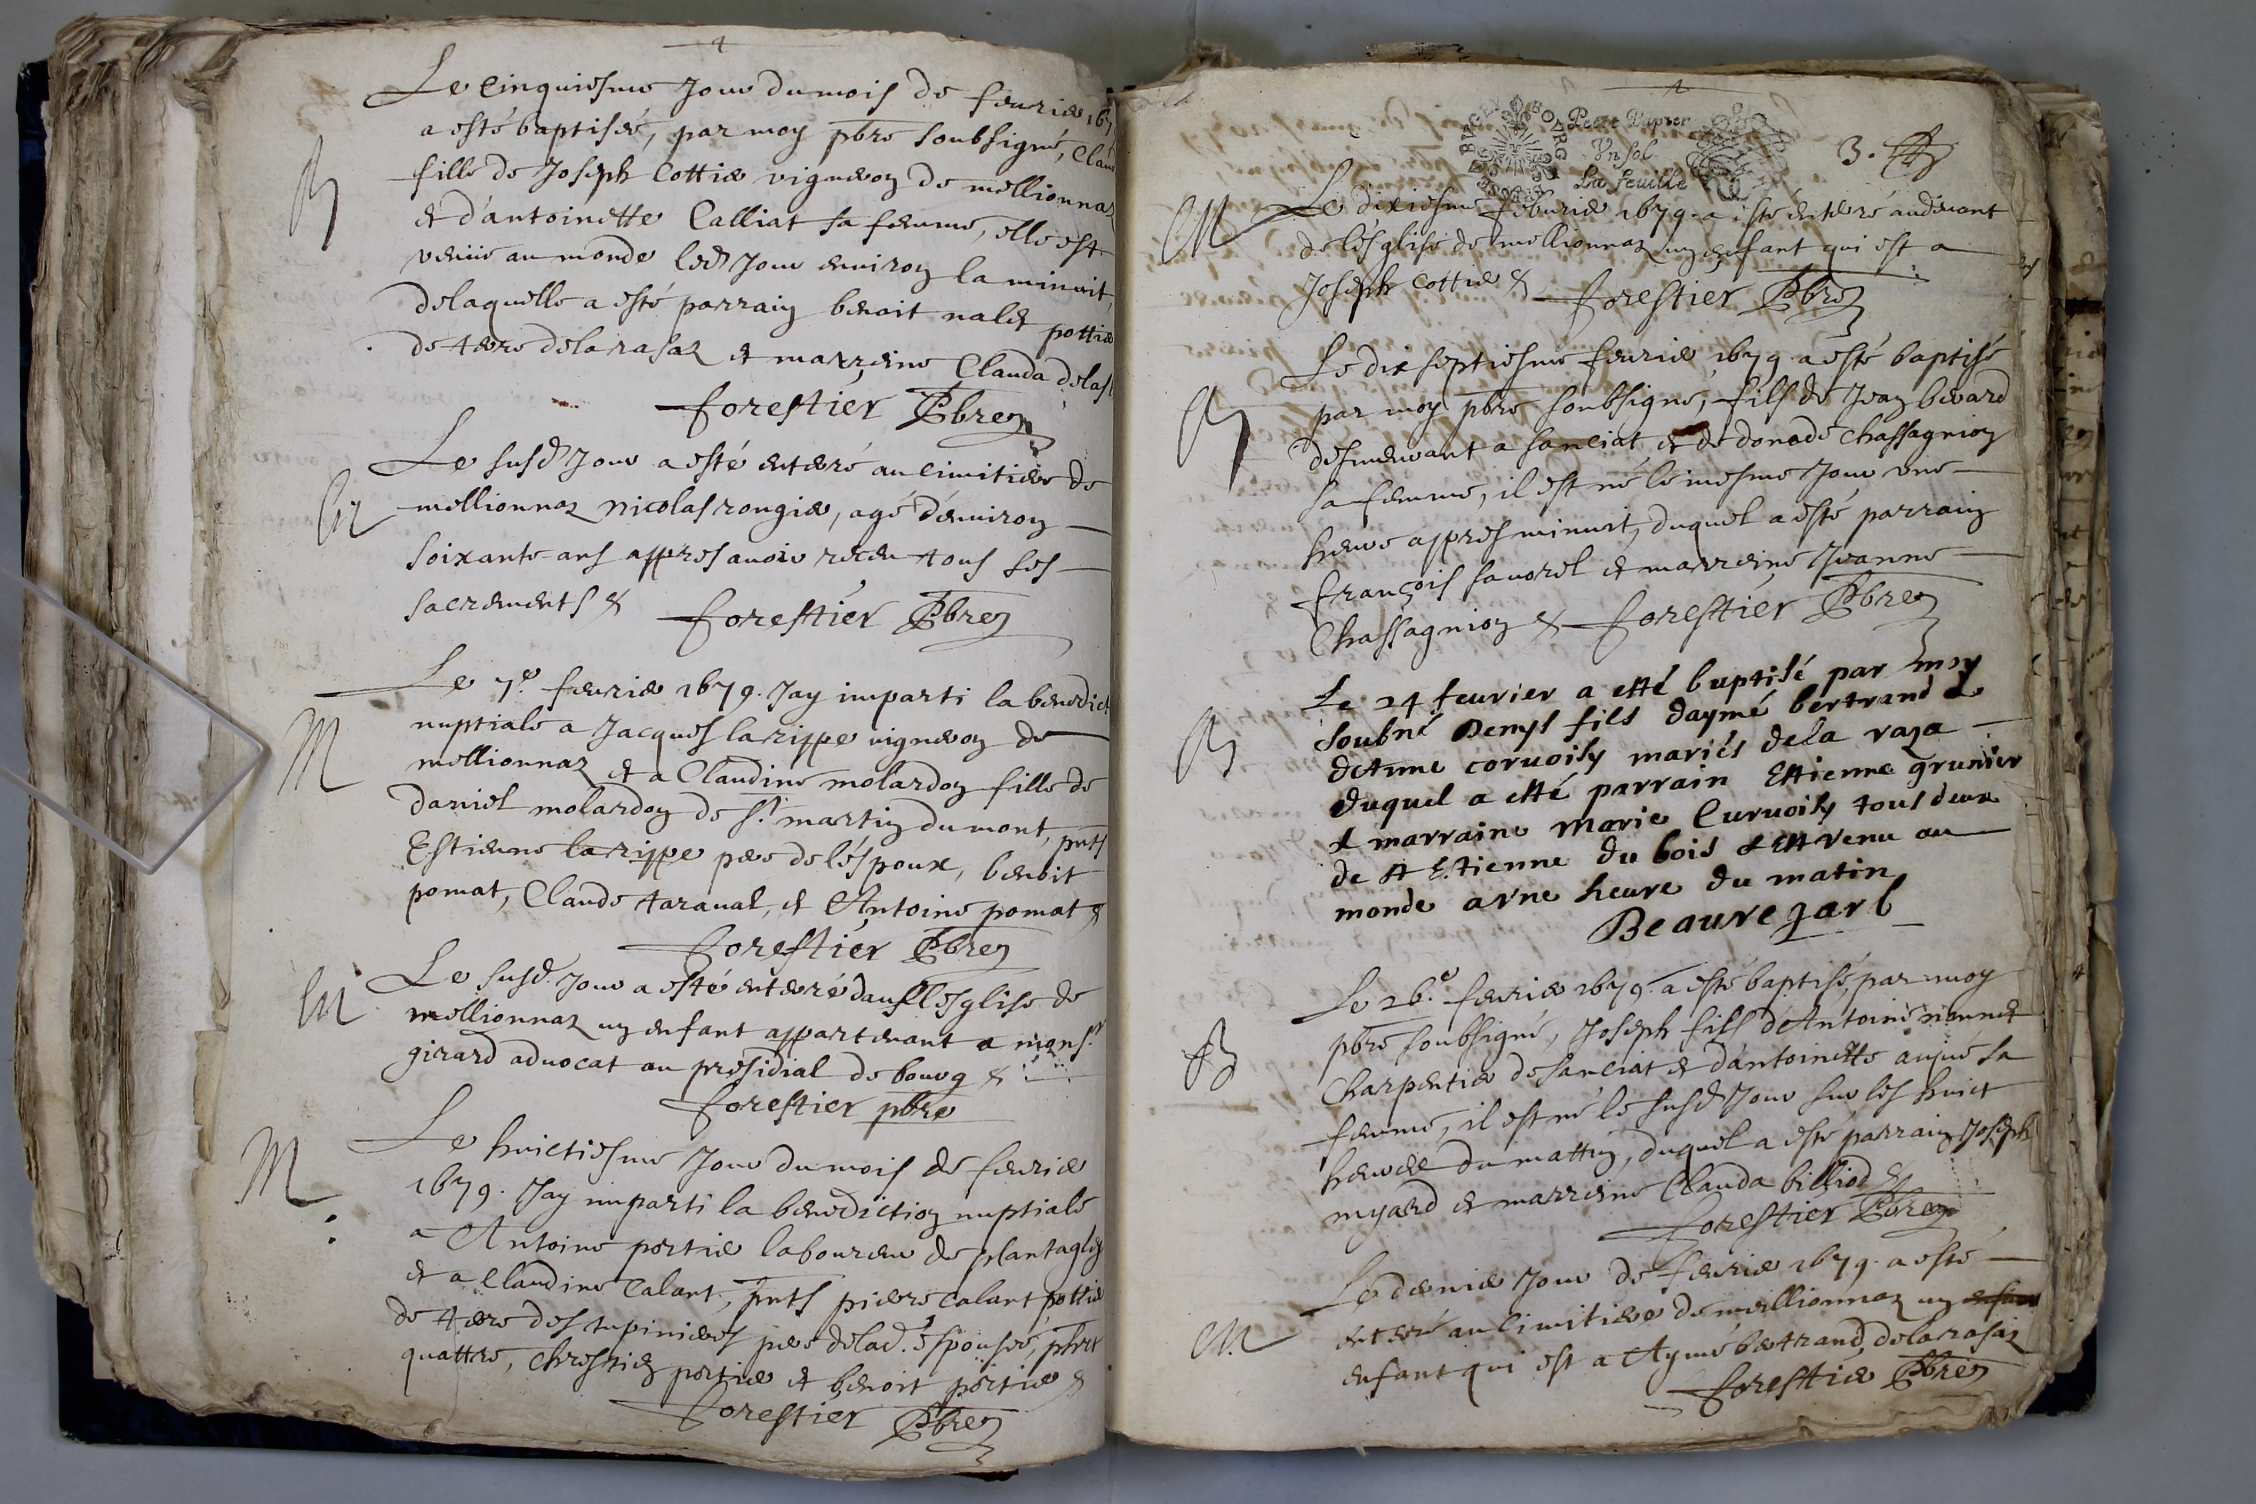 Le Cinquiesme Jour du mois de feurier 167
a esté baptiséé, par moy pbre soubsigné, Clau
B
fille de Joseph Cottier vigneron de mellionnaz
et d'antoinette Calliat sa femme, elle est
venüe au monde led Jour enuiron la minuit,
delaquelle a esté parrain benoit nalet pottier
de terre delarasaz et marreine Clauda delas
forestier Pbre
Le susd Jour a esté enterré au cimitiere de
mellionnaz nicolas rongier, agé d'enuiron
soixante ans appres auoir receu tous ses
sacrements &
forestier Pbre
Le 7e feurier 1679. Jay imparti la benedict
nuptiale a Jacques larippe vigneron de
M
mellionnaz et a Claudine molardon fille de
daniel molardon de st martin du mont, pnts
Estienne larippe pere de léspoux, benoit
pomat, Claude taraual, et Antoine pomat &
forestier Pbre
Le susd. Jour a esté enterré dans lesglise de
mellionnaz un enfant appartenant a monsr
girard aduocat au presidial de bourg &
forestier pbre
Le huictiesme Jour du mois de feurier
M
1679. Jay imparti la benediction nuptiale
a Antoine portier laboureur de plantaglet
et a Claudine Calant, pnts pierre calant pottier
de terre des tupinieres pere delad. éspouséé, phibert
quattre, chrestien portier et benoit portier &
forestier Pbre
BVGEY BOVRG
Petit Papier
Vn sol
La feuille
3.
Le dixiesme feburier 1679. a ésté enterré audeuant
de lésglise de mellionnaz un enfant qui est a
Joseph Cottier &
forestier Pbre
Le dix septiesme feurier 1679 a ésté baptisé
B
par moy pbre soubsigné, fils de Jean berard
desmeurant a sanciat et de donade Chassagnion
sa femme, il est né le mesme Jour une
heure appres minuit, duquel a esté parrain
françois sauorel et marreine Jeanne
Chassagnion &
forestier Pbre
Le 24 feurier a etté baptisé par moy
soubné Denys fils daymé bertrand &
B
detAnne coruoisy mariés dela raza
duquel a etté parrain Ettienne grunier
& marraine Marie Curuoisy tous deux
de st Etienne du bois & est venu au
monde a vne heure du matin
Beauregarl
Le 26.e feurier 1679. a esté baptisé, par moy
pbre soubsigné, Joseph fils d'Antoine niermet
B
Charpentier de sanciat et d'antoinette aujué sa
femme, il est né le susd Jour sur les huict
heures du mattin, duquel a ésté parrain Joseph
myard et marreine Clauda billiod &
forestier Pbre
Le dernier Jour de feurier 1679. a esté
enterré au cimitiere de meillionnaz un enfant
enfant qui est a Aymé bertrand, delarasaz
forestier Pbre